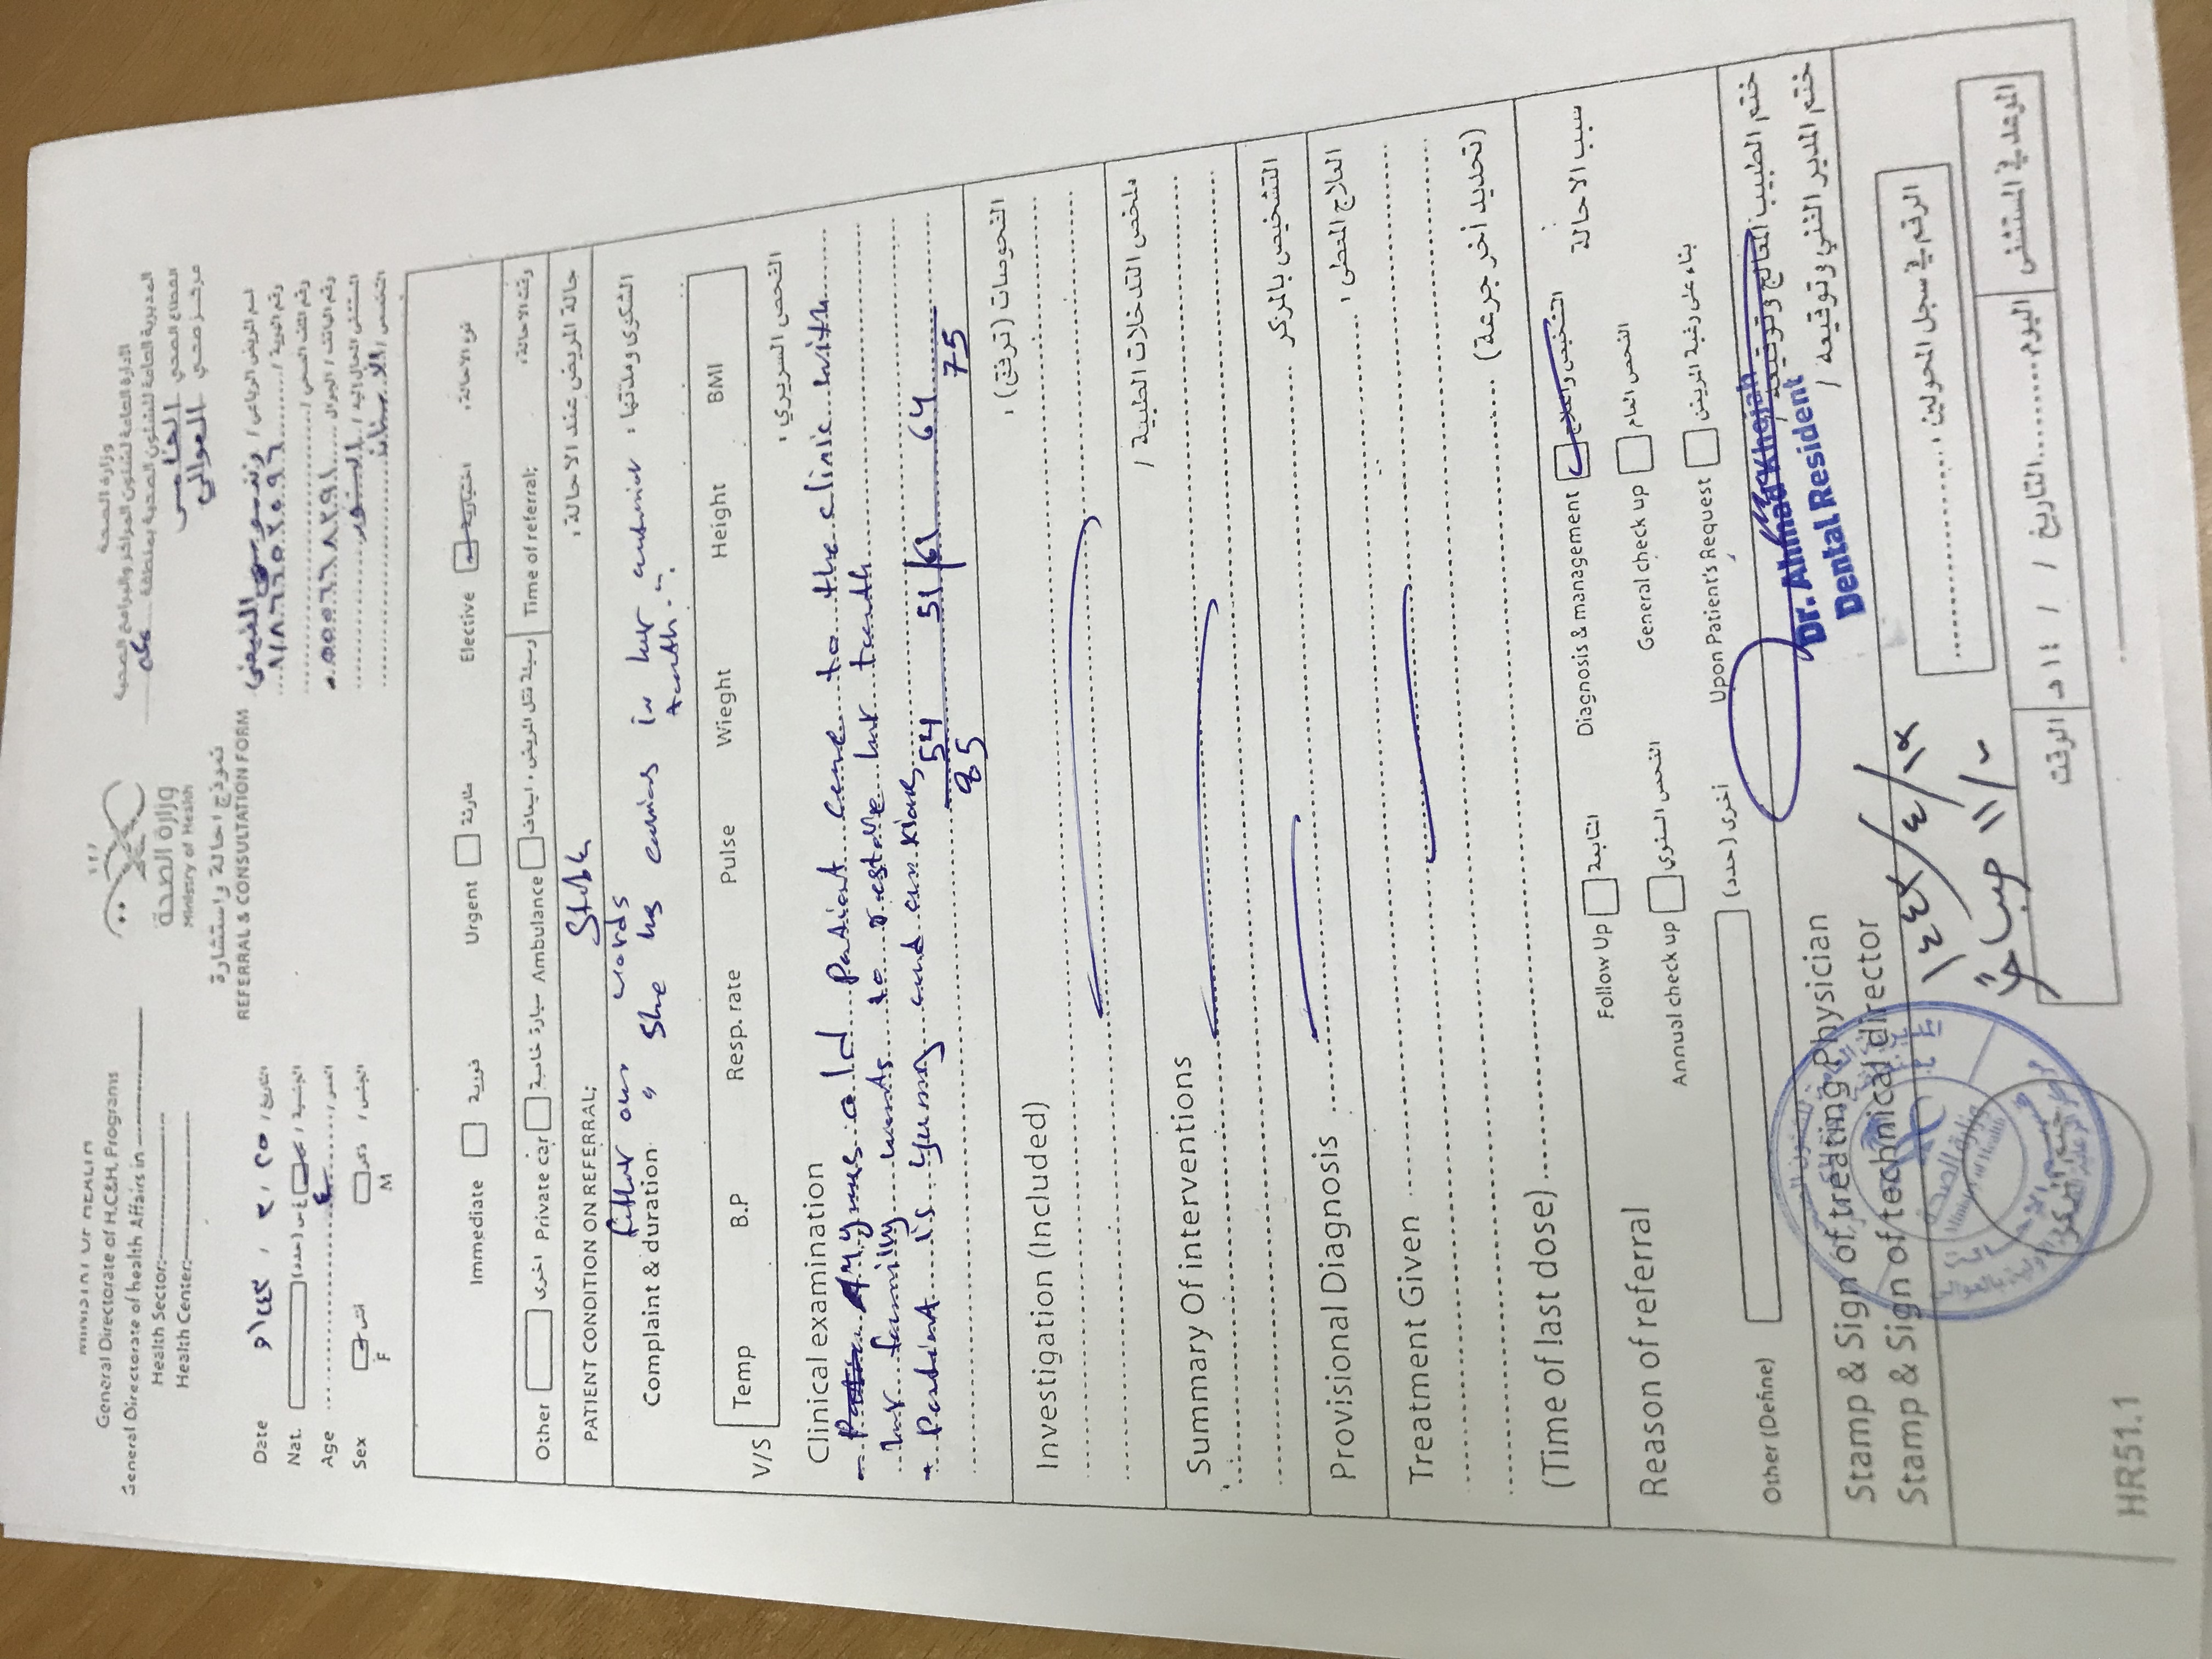 MINISTRY OF HEALTH
General Directorate of H.C&H. Programs
General Directorate of health Affairs in
Health Sector:
Health Center:
وزارة الصحة
Ministry of Health
نموذج احالة واستشارة
REFERRAL & CONSULTATION FORM
وزارة الصحة
الادارة العامة لشئون المراكز والبرامج الصحية
المديرية العامة للشئون الصحية بمنطقة مكة
القطاع الصحي الخامس
مركز صحي العوالي
Date ١٤٤٣ / ٣ / ٢٥ التاريخ /
Nat. (حدد) غ س س الجنسية /
Age ٤ العمر /
Sex أنثى ذكر الجنس /
F M
اسم المريض الرباعي / موسى
رقم الهوية /
رقم الملف الصحي /
رقم الهاتف / الجوال ٠٥٥٥٦٦٨٢٩١
المستشفى المحال إليه / النور
التخصص / الاسنان
Immediate فورية Urgent طارئة Elective اختيارية نوع الاحالة:
Other اخرى Private car سيارة خاصة Ambulance وسيلة نقل المريض: اسعاف Time of referral: وقت الاحالة:
PATIENT CONDITION ON REFERRAL: Stable حالة المريض عند الاحالة:
father own words
Complaint & duration " She has caries in her anterior الشكوى ومدتها:
teeth "
V/S Temp B.P Resp. rate Pulse Wieght Height BMI
Clinical examination الفحص السريري:
- 4 years old patient came to the clinic with
her familly wants to restore her teeth
- Patient is young and anxious
54 51 | 61 64
85 75
Investigation (Included) الفحوصات (ترفق):
Summary Of interventions ملخص التدخلات الطبية /
Provisional Diagnosis التشخيص بالمركز
Treatment Given العلاج المعطى:
(Time of last dose) (تحديد أخر جرعة)
Reason of referral سبب الاحالة
Follow Up المتابعة Diagnosis & management التشخيص والعلاج
Annual check up الفحص السنوي General check up الفحص العام
Other (Define) أخرى (حدد) Upon Patient's Request بناء على رغبة المريض
Stamp & Sign of treating Physician ختم الطبيب المعالج وتوقيعه /
Dr. Ahmad Khojah
Dental Resident
Stamp & Sign of technical director ختم المدير الفني وتوقيعه /
وزارة الصحة
Ministry of Health
ختم المركز
١٤٤٣/٤/١٩
١١/٠ صباحاً
الرقم في سجل المحولين:
الموعد في المستشفى اليوم التاريخ / / ١٤هـ الوقت
HR51.1